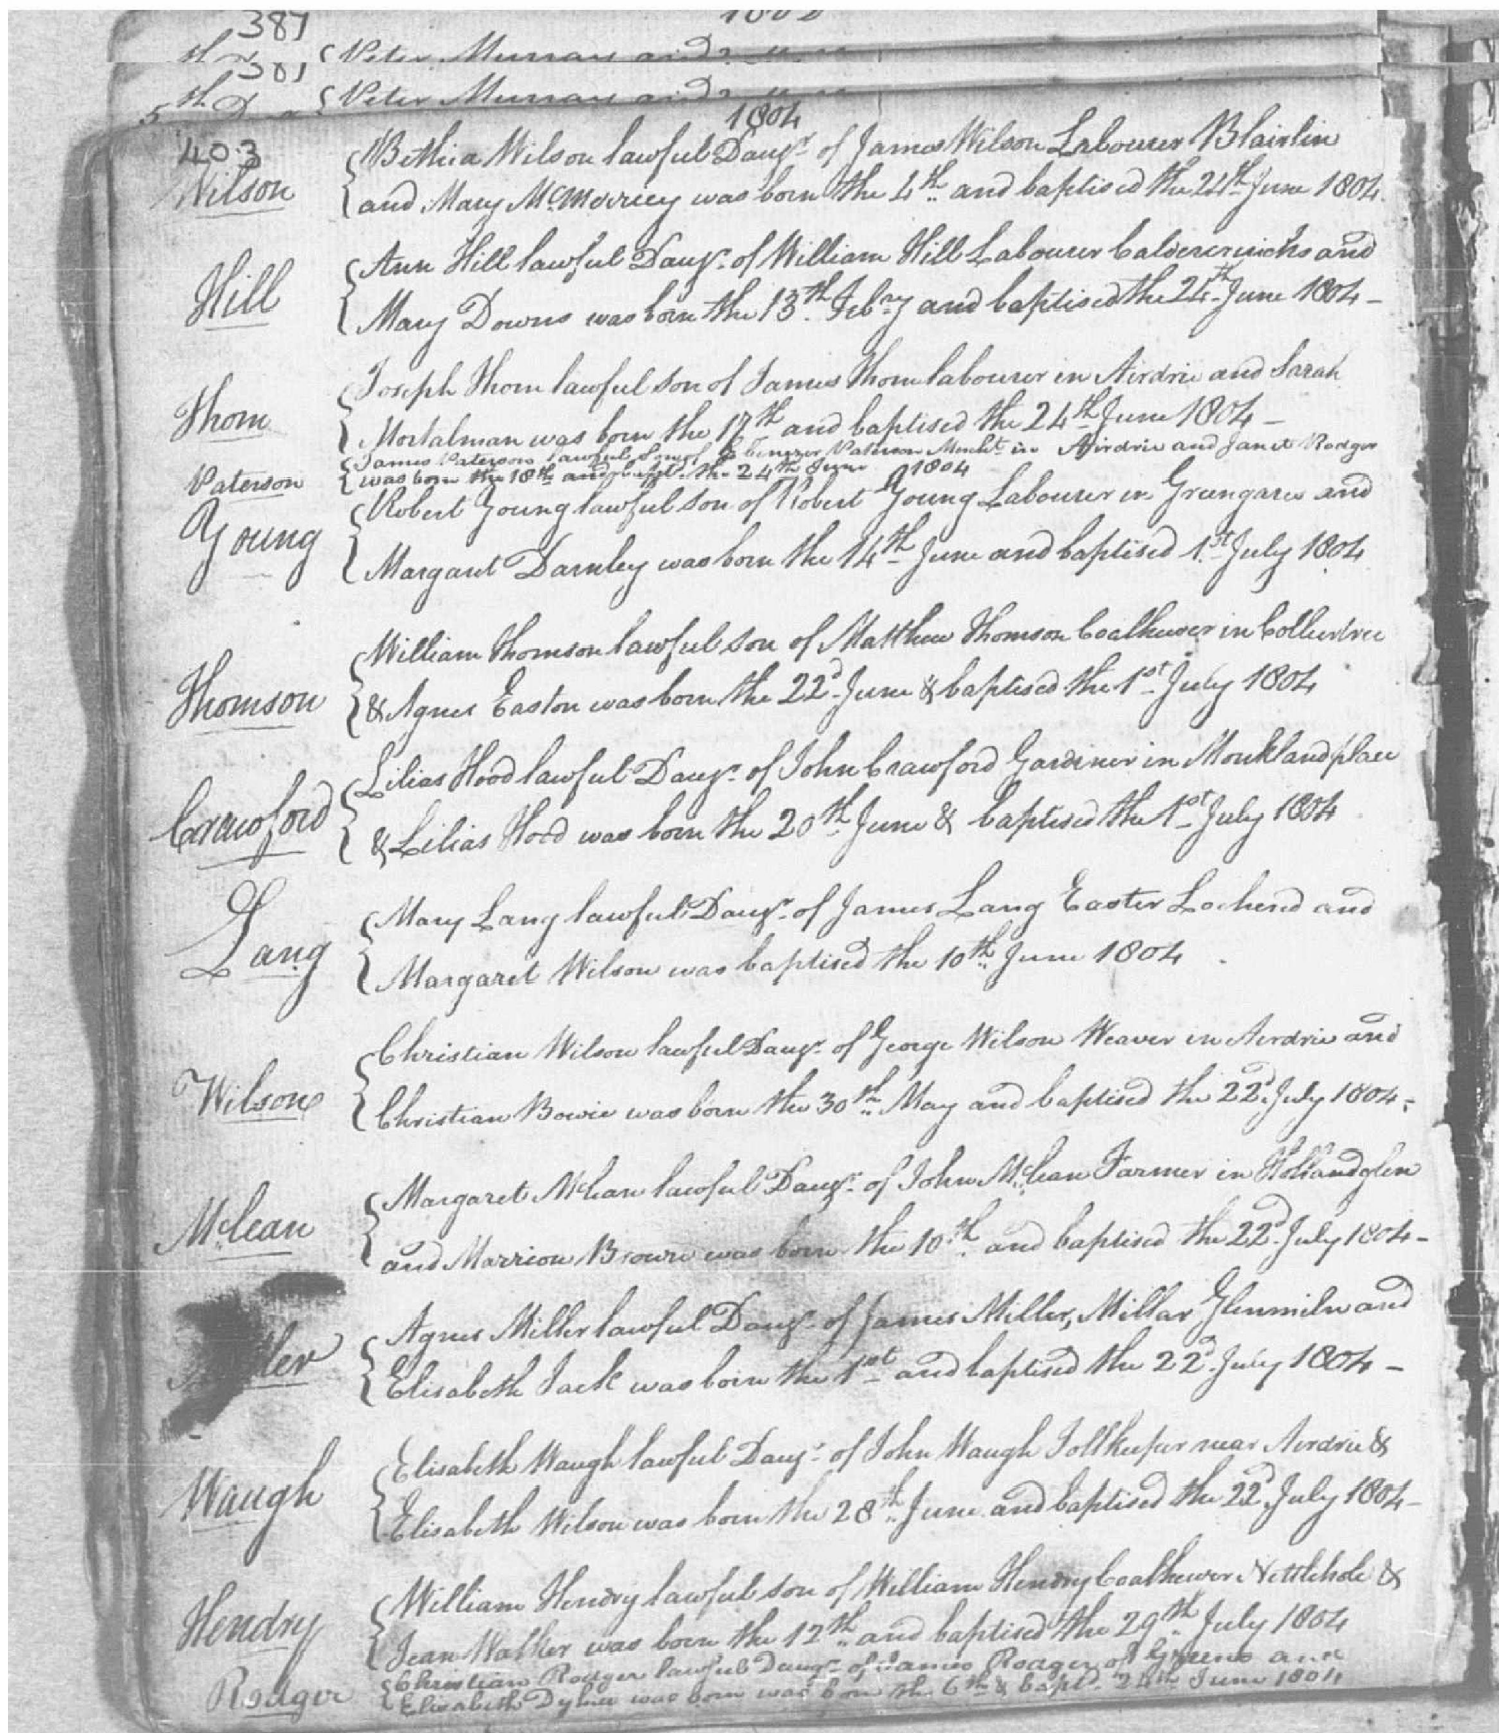 387
Peter Murray and
387
5th Peter Murray and
1804
403
Wilson
Bethia Wilson lawful Daugr. of James Wilson Labourer Blairlin
and Mary McMurricy was born the 4th and baptised the 24th June 1804
Hill
Ann Hill lawful Daugr. of William Hill Labourer and
Mary Downs was born the 13th Febry and baptised the 24th June 1804 -
Thom
Joseph Thom lawful son of James Thom labourer in Airdrie and Sarah
Mortalman was born the 17th and baptised the 24th June 1804 -
Paterson
James Paterson lawful Son of Ebenezer Paterson Mercht. in Airdrie and Janet Rodger
was born the 18th and bapt. the 24th June 1804
Young
Robert Young lawful son of Robert Young Labourer in Greengares and
Margaret Darnley was born the 14th June and baptised 1st July 1804
Thomson
William Thomson lawful son of Matthew Thomson Coalhewer in
& Agnes Easton was born the 22d June & baptised the 1st July 1804
Crawford
Lilias Hood lawful Daugr. of John Crawford Gardiner in Monklandplace
& Lilias Hood was born the 20th June & baptised the 1st July 1804
Lang
Mary Lang lawful Daugr. of James Lang Easter Lochend and
Margaret Wilson was baptised the 10th June 1804
Wilson
Christian Wilson lawful Daugr. of George Wilson Weaver in Airdrie and
Christian Bowie was born the 30th May and baptised the 22d July 1804
McLean
Margaret McLean lawful Daugr. of John McLean Farmer in Hollandglen
and Marrion Brown was born the 10th and baptised the 22d July 1804 -
Agnes Miller lawful Daugr. of James Miller, Millar Glenmiln and
Elisabeth Jack was born the 1st and baptised the 22d July 1804 -
Waugh
Elisabeth Waugh lawful Daugr. of John Waugh Tollkeeper near Airdrie &
Elisabeth Wilson was born the 28th June and baptised the 22d July 1804 -
Hendry
William Hendry lawful son of William Hendry Coalhewer Nettlehole &
Jean Walker was born the 12th and baptised the 29th July 1804
Rodger
Christian Rodger lawful Daugr. of James Rodger of Greens and
Elisabeth was born was born the 6th & bapt. 24th June 1804